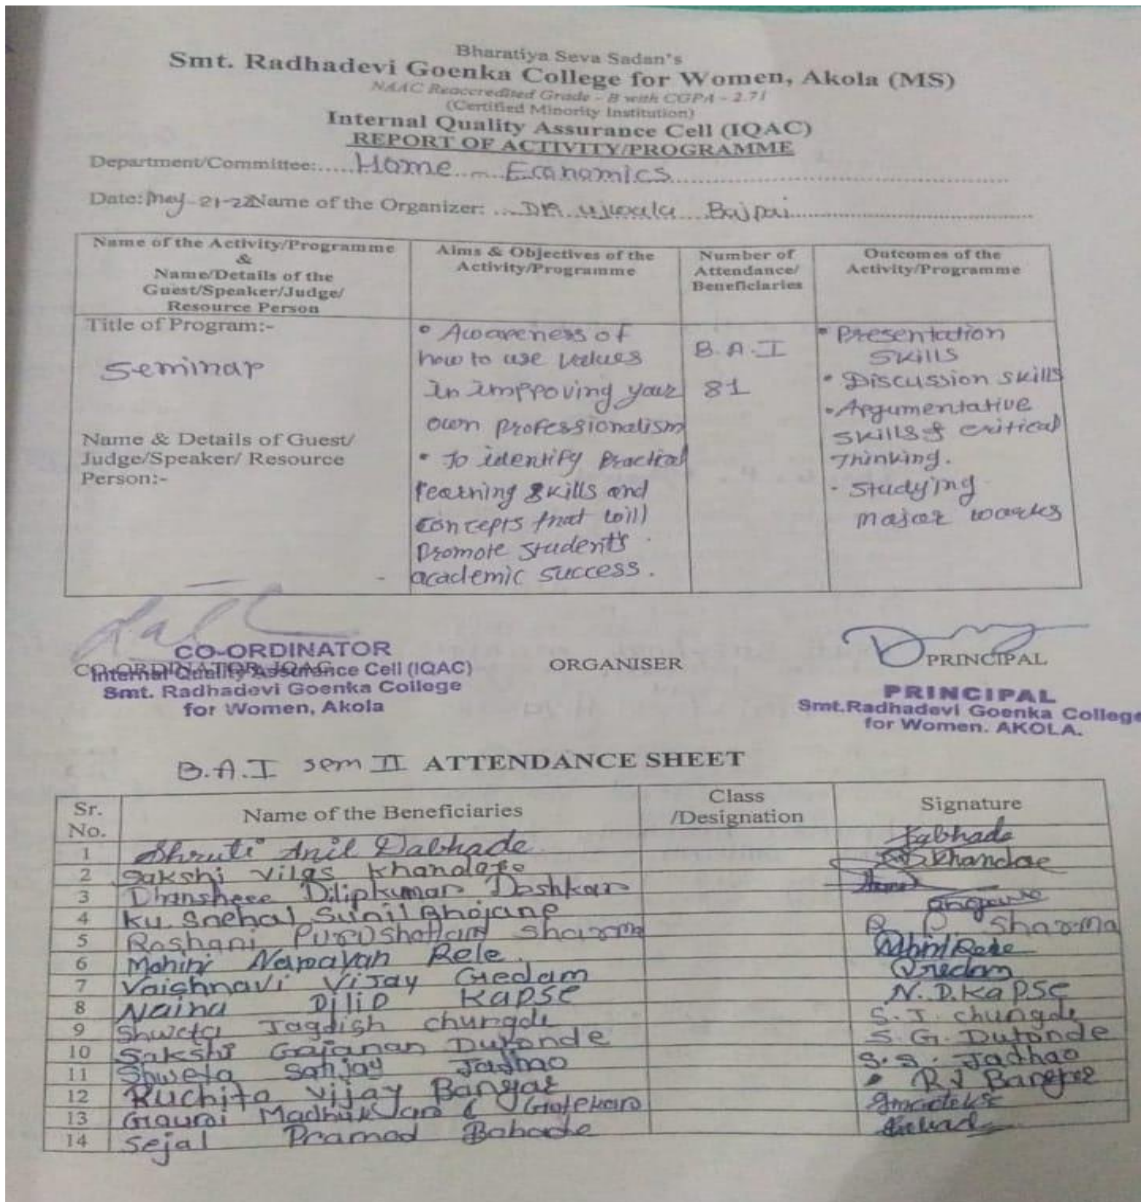 Bharatiya Seva Sadan's
Smt. Radhadevi Goenka College for Women, Akola (MS)
NAAC Reaccredited Grade - B with CGPA - 2.71
(Certified Minority Institution)
Internal Quality Assurance Cell (IQAC)
REPORT OF ACTIVITY/PROGRAMME
Department/Committee:..... Home Economics
Date: May 21-22 Name of the Organizer: ... DR. Ujwala Bajpai
Name of the Activity/Programme
&
Name/Details of the
Guest/Speaker/Judge/
Resource Person
Aims & Objectives of the
Activity/Programme
Number of
Attendance/
Beneficiaries
Outcomes of the
Activity/Programme
Title of Program:-
Seminar
Name & Details of Guest/
Judge/Speaker/ Resource
Person:-
• Awareness of
how to use values
in improving your
own professionalism
• to identify Practical
learning skills and
concepts that will
Promote student's
academic success.
B.A.I
81
• Presentation
Skills
• Discussion skills
• Argumentative
skills & critical
Thinking.
- Studying
major works
CO-ORDINATOR
CO-ORDINATOR IQAC
Internal Quality Assurance Cell (IQAC)
Smt. Radhadevi Goenka College
for Women, Akola
ORGANISER
PRINCIPAL
PRINCIPAL
Smt.Radhadevi Goenka College
for Women. AKOLA.
B.A.I sem II ATTENDANCE SHEET
Sr. No. Name of the Beneficiaries Class /Designation Signature
1 Shruti Anil Dabhade Dabhade
2 Sakshi Vilas Khandare Khandare
3 Dhanshree Dilipkumar Doshkar
4 Ku. Snehal Sunil Bhojane
5 Roshani Purushottam Sharma R P Sharma
6 Mohini Narayan Rele
7 Vaishnavi Vijay Gedam Gedam
8 Naina Dilip Kapse N.D.Kapse
9 Shweta Jagdish chungde S.J. chungde
10 Sakshi Gajanan Dutonde S.G. Dutonde
11 Shweta Sanjay Jadhao S.S. Jadhao
12 Ruchita Vijay Bangar RV Bangar
13 Gauri Madhukar
14 Sejal Pramod Bobade